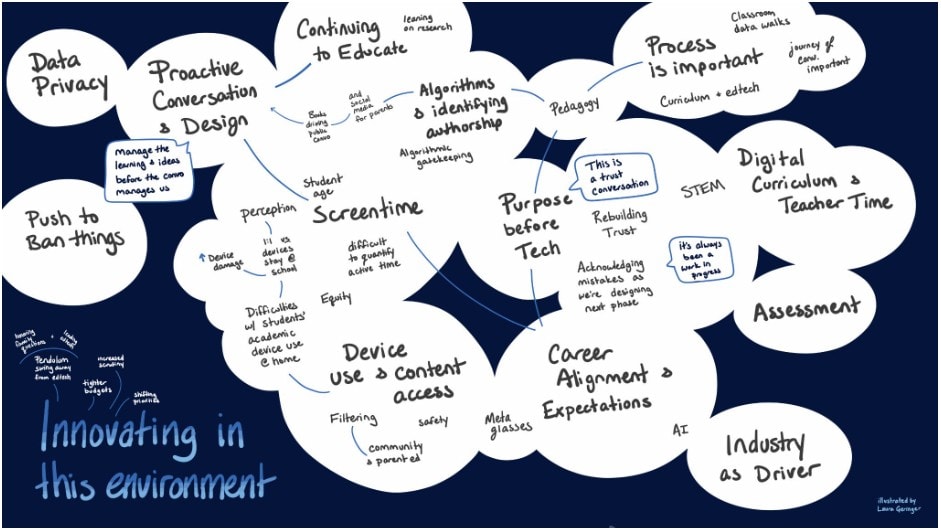 Data
Privacy
Proactive
Conversation
& Design
Continuing
to Educate
learning
on research
Manage the
learning & ideas
before the convo
manages us
Books
driving
public
convo
and
social
media
for parents
Algorithms
& identifying
authorship
Algorithmic
gatekeeping
Pedagogy
Process
is important
Classroom
data walks
journey of
conv.
important
Curriculum + edtech
Push to
Ban things
Student
age
perception
Screentime
1:1 vs
devices
stay @
school
↑ Device
damage
difficult
to quantify
active time
Difficulties
w/ students'
academic
device use
@ home
Equity
Purpose
before
Tech
This is
a trust
conversation
Rebuilding
Trust
STEM
Acknowledging
mistakes as
we're designing
next phase
it's always
been a
work in
progress
Digital
Curriculum &
Teacher Time
Assessment
Device
use & content
access
Filtering
safety
community
& parent ed
Meta
glasses
Career
Alignment &
Expectations
AI
Industry
as Driver
honoring
family
questions
+
leading
edtech
Pendulum
swing away
from edtech
tighter
budgets
increased
scrutiny
shifting
priorities
Innovating in
this environment
illustrated by